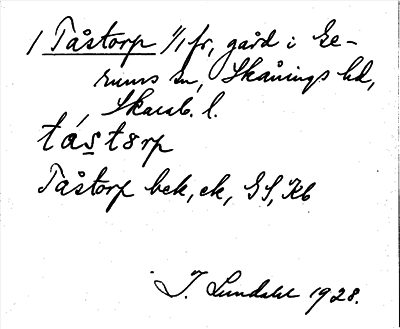 1 Tåstorp 1/1 fr, gård i Ge-
rums sn, Skånings hd,
Skarab. l.
tástorp
Tåstorp bek, ek, GS, Kb
I. Lundahl 1928.